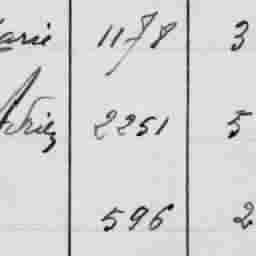 arie 1178 3
2251 5
596 2